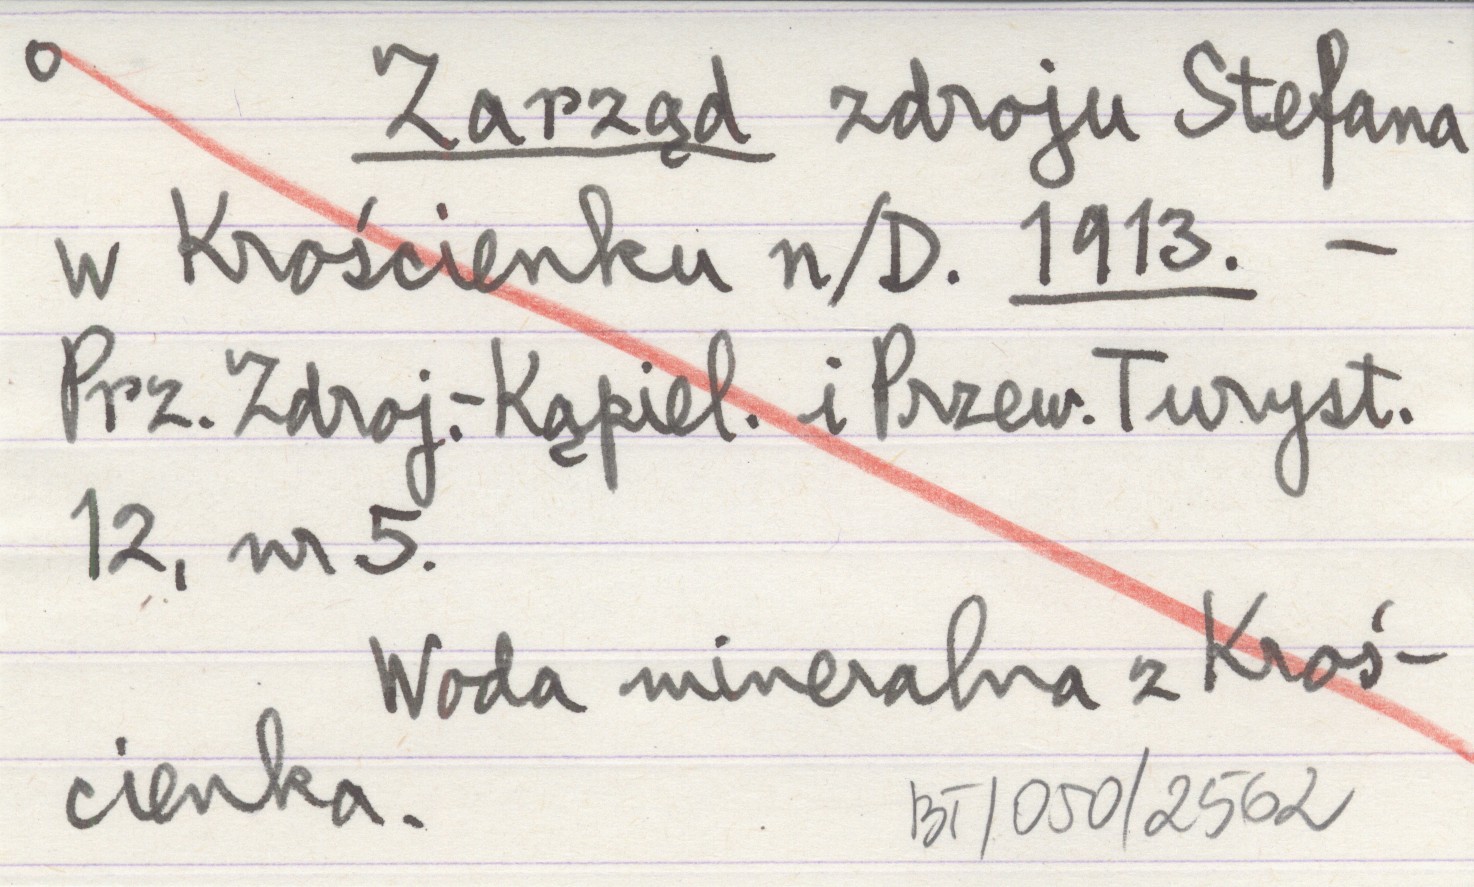 o Zarząd zdroju Stefana
w Krościenku n/D. 1913. —
Prz. Zdroj.-Kąpiel. i Przew. Turyst.
12, nr 5.
Woda mineralna z Kroś-
cienka.
BT/050/2562